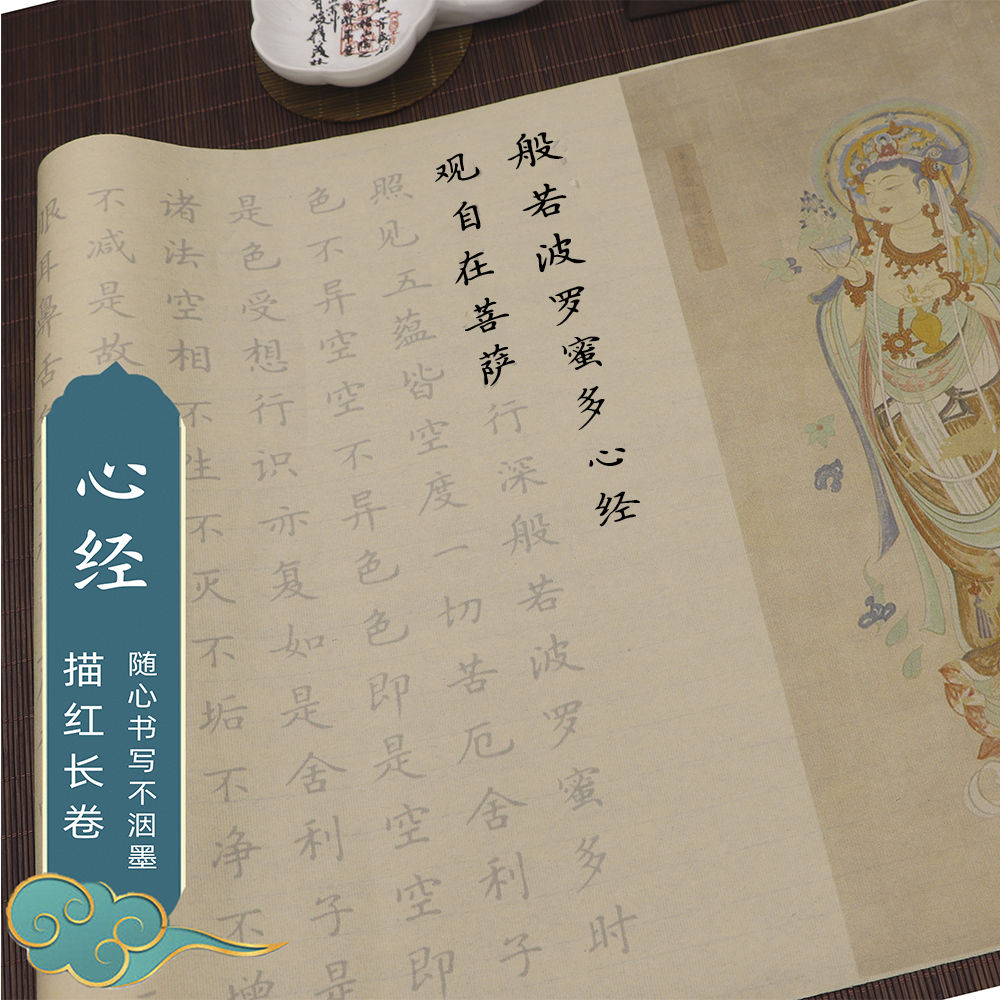 般若波罗蜜多心经
观自在菩萨行深般若波罗蜜多时
照见五蕴皆空度一切苦厄舍利子
色不异空空不异色色即是空空即
是色受想行识亦复如是舍利子是
诸法空相不生不灭不垢不净不增
不减是故
眼耳鼻舌
心经
随心书写不洇墨
描红长卷